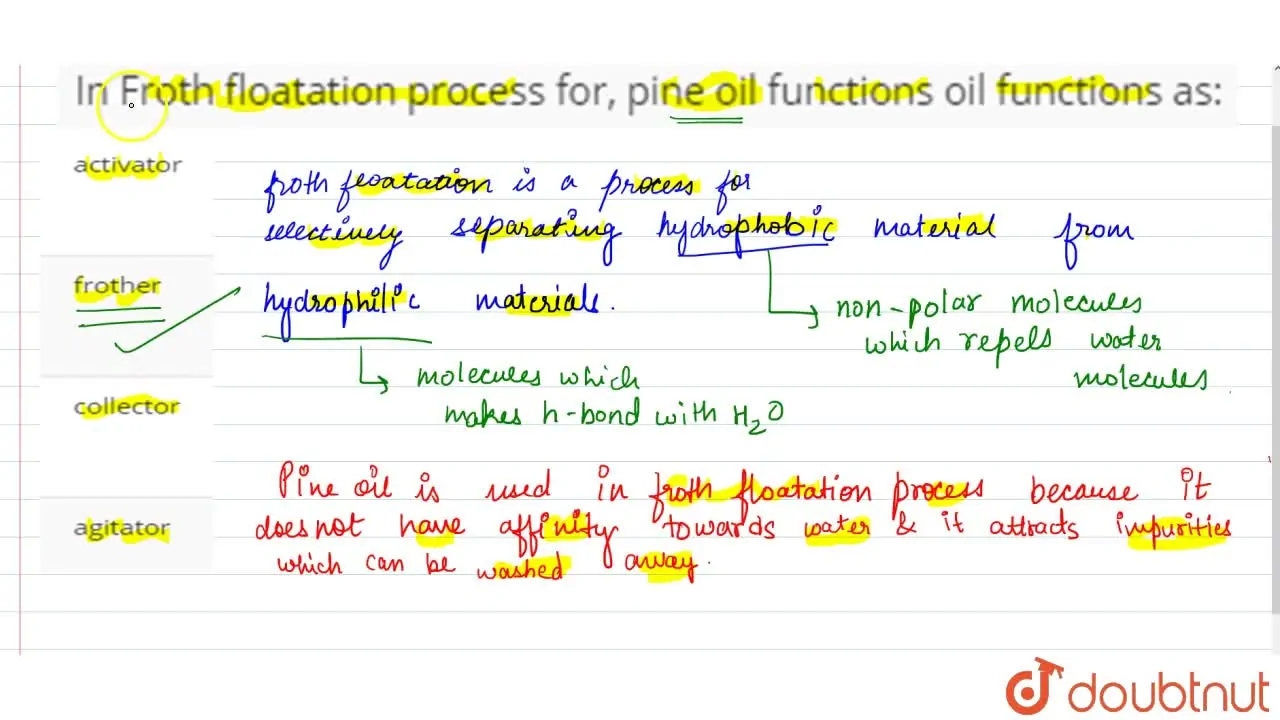 In Froth floatation process for, pine oil functions oil functions as:
activator
froth floatation is a process for
selectively separating hydrophobic material from
frother
hydrophilic materials.
non-polar molecules
which repels water
molecules
molecules which
makes h-bond with H₂O
collector
Pine oil is used in froth floatation process because it
agitator
does not have affinity towards water & it attracts impurities
which can be washed away.
doubtnut